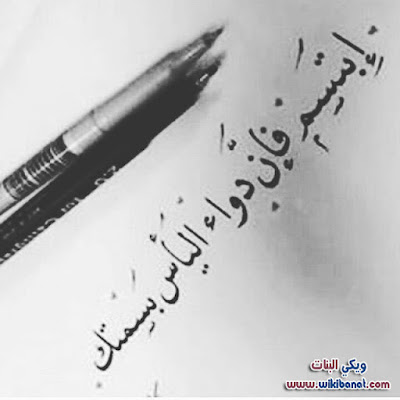 إِبْتَسِمْ فَإِنَّ دَوَاء اليَأَسْ بَسِمَتك
ويكي البنات
www.wikibanat.com